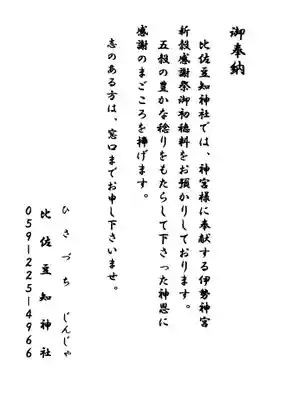 御奉納
比佐豆知神社では、神宮様に奉献する伊勢神宮
新穀感謝祭御初穂料をお預かりしております。
五穀の豊かな稔りをもたらして下さった神恩に
感謝のまごころを捧げます。
志のある方は、窓口までお申し下さいませ。
ひさづち じんじゃ
比佐豆知神社
059-225-4966